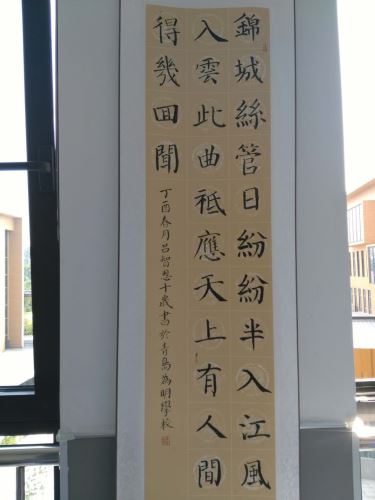 錦城絲管日紛紛半入江風
入雲此曲祗應天上有人間
得幾回聞
丁酉春月吕智恩十歲書於青島為明學校